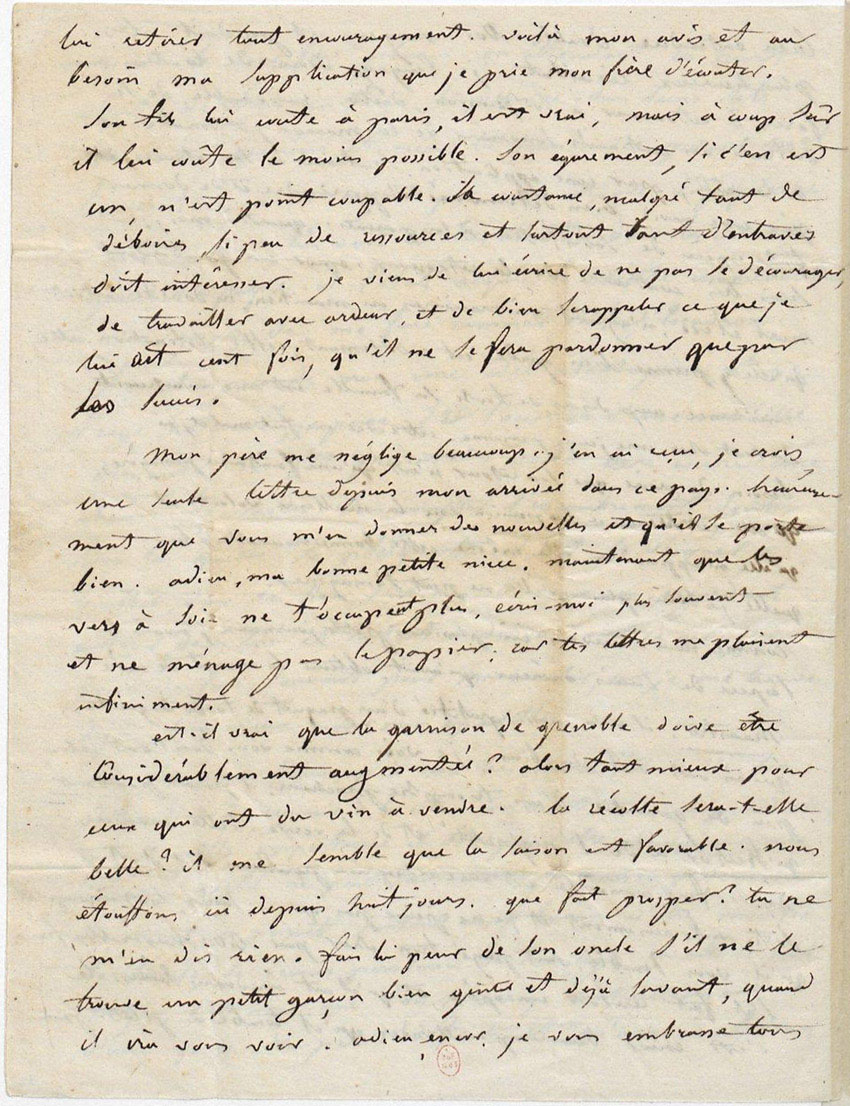 lui retirer tout encouragement. voilà mon avis et au
besoin ma supplication que je prie mon frère d'écouter.
son fils lui coute à paris, il est vrai, mais à coup sûr
il lui coûte le moins possible. son égarement, si c'en est
un, n'est point coupable. Sa constance, malgré tant de
déboires, si peu de ressources et surtout tant d'entraves
doit intéresser. je viens de lui écrire de ne pas se décourager,
de travailler avec ardeur, et de bien se rappeler ce que je
lui ai dit cent fois, qu'il ne se fera pardonner que par
les succès.
Mon père me néglige beaucoup. j'en ai reçu, je crois
une seule lettre depuis mon arrivée dans ce pays. heureuse-
ment que vous m'en donnez des nouvelles et qu'il se porte
bien. adieu, ma bonne petite nièce. maintenant que les
vers à soie ne t'occupent plus, écris-moi plus souvent
et ne ménage pas le papier, car tes lettres me plaisent
infiniment.
est-il vrai que la garnison de grenoble doive être
Considérablement augmentée? alors tant mieux pour
ceux qui ont du vin à vendre. la récolte sera-t-elle
belle? il me semble que la saison est favorable. nous
étouffons ici depuis huit jours. que fait prosper? tu ne
m'en dis rien. fais lui peur de son oncle s'il ne le
trouve un petit garçon bien gentil et déjà savant, quand
il ira vous voir. adieu, encor. je vous embrasse tous